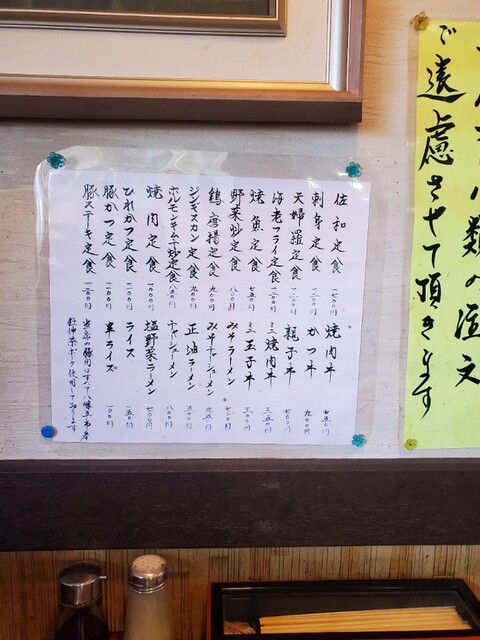 類の注文
ご遠慮させて頂きます
佐和定食
刺身定食 一二〇〇円
天婦羅定食 一二〇〇円
海老フライ定食 一二〇〇円
焼魚定食 七五〇円
野菜炒定食 八〇〇円
鶏唐揚定食 九〇〇円
ジンギスカン定食 九〇〇円
ホルモンキムチ炒定食
焼肉定食 一〇〇〇円
ひれかつ定食
豚かつ定食
豚ステーキ定食
焼肉丼 七五〇円
かつ丼 九〇〇円
親子丼 七〇〇円
ミニ焼肉丼 三五〇円
ミニ玉子丼 三〇〇円
みそラーメン 七〇〇円
みそチャーシューメン 九五〇円
正油ラーメン 五〇〇円
チャーシューメン 八〇〇円
塩野菜ラーメン 七〇〇円
ライス 一五〇円
半ライス 一〇〇円
当店の豚肉はすべて八幡平市産
杜仲茶ポーク使用しております